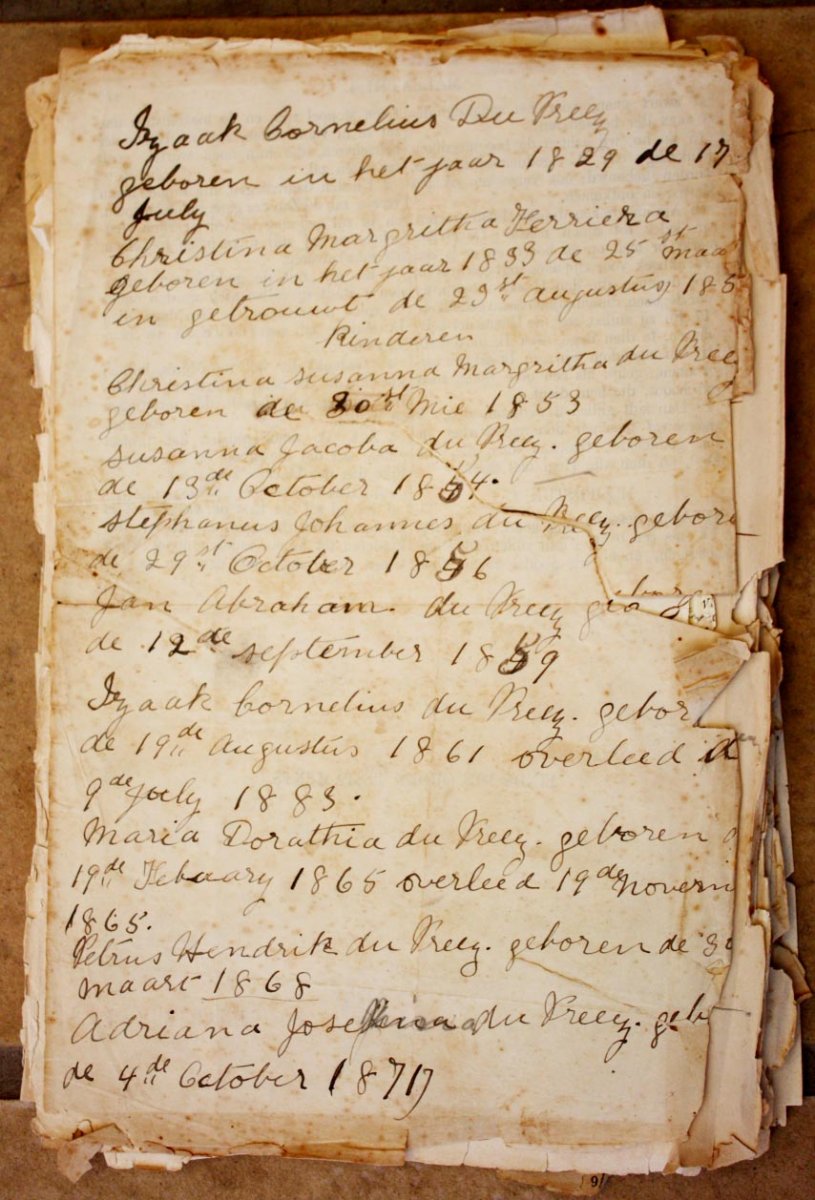 Izaak Cornelius Du Preez
geboren in het jaar 1829 de 17
July
Christina Margritha Ferriera
geboren in het jaar 1833 de 25st maa
in getrouwt de 29st augustus 185
kinderen
Christina susanna Margritha du Pree
geboren de 30st Mie 1853
susanna Jacoba du Preez. geboren
de 13de October 1854.
stephanus Johannes du Preez. gebor
de 29st October 1856
Jan Abraham. du Preez
de 12de september 1859
Izaak Cornelius du Preez. gebor
de 19de Augustus 1861 overleed d
9de July 1883.
Maria Dorathia du Preez. geboren d
19de Febuary 1865 overleed 19de Novem
1865.
Petrus Hendrik du Preez. geboren de 30
maart 1868
Adriana Josephina du Preez. geb
de 4de October 1871